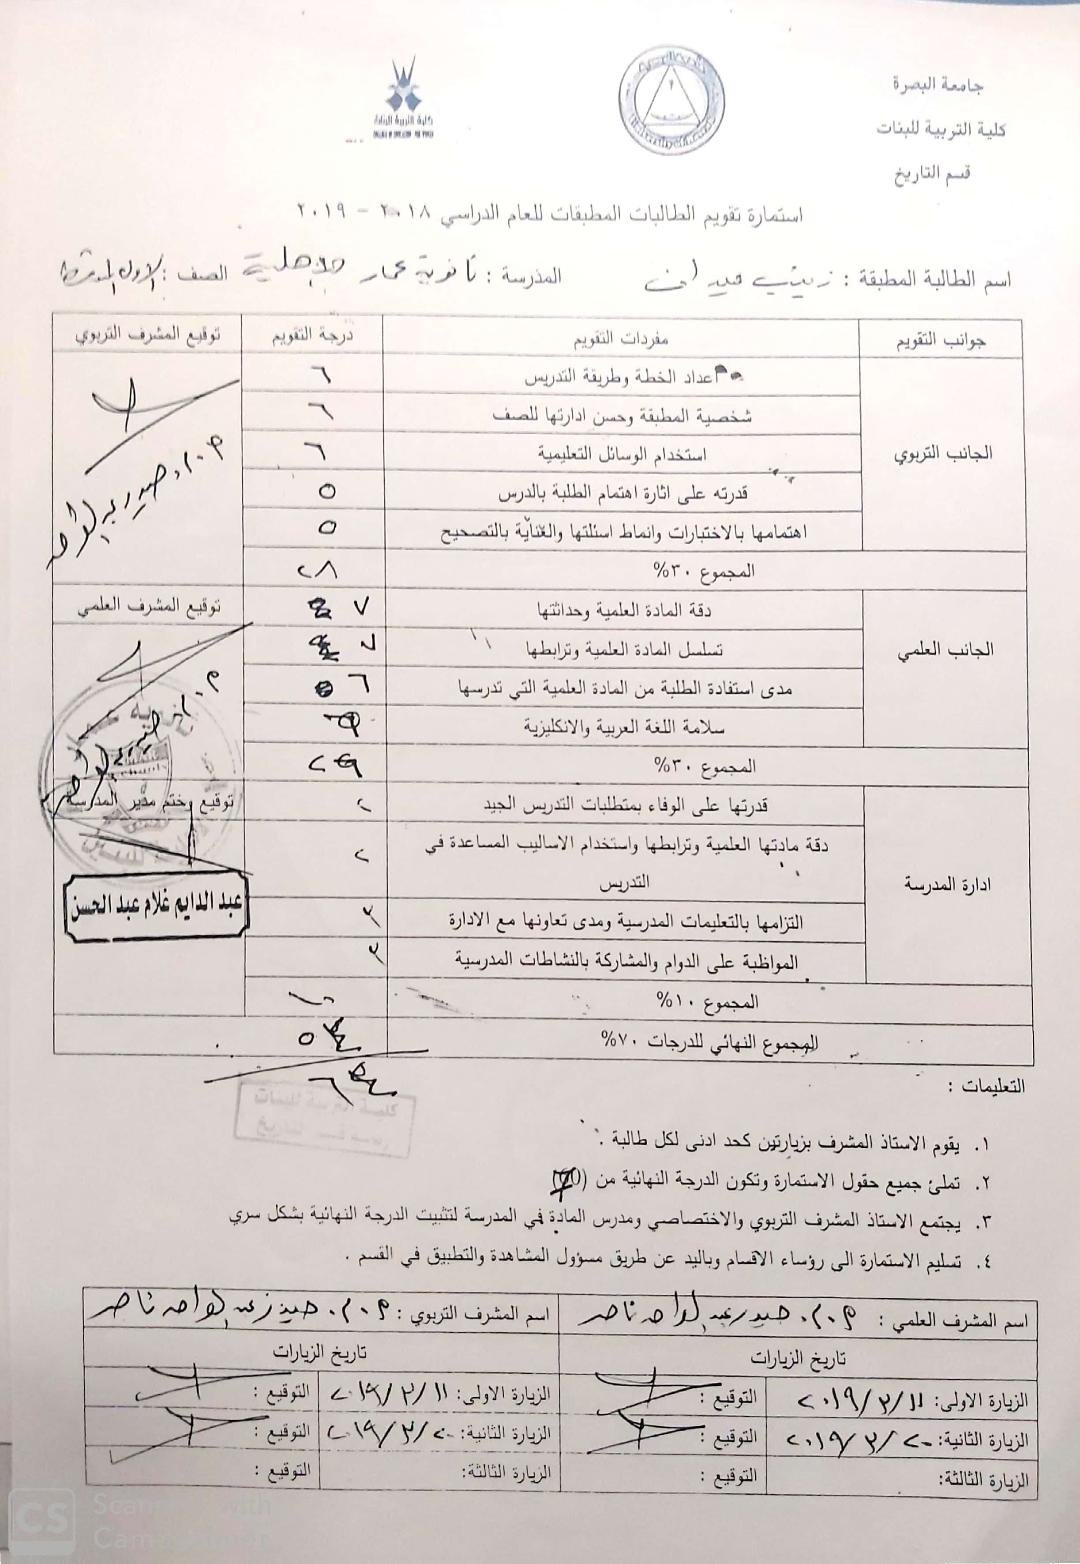 جامعة البصرة
كلية التربية للبنات
قسم التاريخ
كلية التربية للبنات
COLLEGE OF EDUCATION FOR WOMEN
استمارة تقويم الطالبات المطبقات للعام الدراسي ٢٠١٨ - ٢٠١٩
اسم الطالبة المطبقة : زينب المدرسة : ثانوية عمار الاهلية الصف : الاول المتوسط
جوانب التقويم مفردات التقويم درجة التقويم توقيع المشرف التربوي
الجانب التربوي
اعداد الخطة وطريقة التدريس ٦
شخصية المطبقة وحسن ادارتها للصف ٦
استخدام الوسائل التعليمية ٦
قدرته على اثارة اهتمام الطلبة بالدرس ٥
اهتمامها بالاختبارات وانماط اسئلتها والعناية بالتصحيح ٥
م.م. حيدر عبد الواحد
المجموع ٣٠% ٢٨
الجانب العلمي
توقيع المشرف العلمي
دقة المادة العلمية وحداثتها ٧
تسلسل المادة العلمية وترابطها ٧
مدى استفادة الطلبة من المادة العلمية التي تدرسها ٦
سلامة اللغة العربية والانكليزية
م.م. حيدر عبد الواحد
المجموع ٣٠%
ادارة المدرسة
توقيع وختم مدير المدرسة
قدرتها على الوفاء بمتطلبات التدريس الجيد ٢
دقة مادتها العلمية وترابطها واستخدام الاساليب المساعدة في
التدريس ٢
عبد الدايم غلام عبد الحسن
التزامها بالتعليمات المدرسية ومدى تعاونها مع الادارة ٣
المواظبة على الدوام والمشاركة بالنشاطات المدرسية ٣
المجموع ١٠% ١٠
المجموع النهائي للدرجات ٧٠%
التعليمات :
١. يقوم الاستاذ المشرف بزيارتين كحد ادنى لكل طالبة .
٢. تملئ جميع حقول الاستمارة وتكون الدرجة النهائية من
٣. يجتمع الاستاذ المشرف التربوي والاختصاصي ومدرس المادة في المدرسة لتثبيت الدرجة النهائية بشكل سري
٤. تسليم الاستمارة الى رؤساء الاقسام وباليد عن طريق مسؤول المشاهدة والتطبيق في القسم .
اسم المشرف العلمي : م.م. حيدر عبد الواحد ناصر اسم المشرف التربوي : م.م. حيدر عبد الواحد ناصر
تاريخ الزيارات تاريخ الزيارات
الزيارة الاولى: ٢٠١٩/٣/١١ التوقيع : الزيارة الاولى: ٢٠١٩/٣/١١ التوقيع :
الزيارة الثانية: ٢٠١٩/٣/٢٠ التوقيع : الزيارة الثانية: ٢٠١٩/٣/٢٠ التوقيع :
الزيارة الثالثة: التوقيع : الزيارة الثالثة: التوقيع :
CS Scanned with
CamScanner